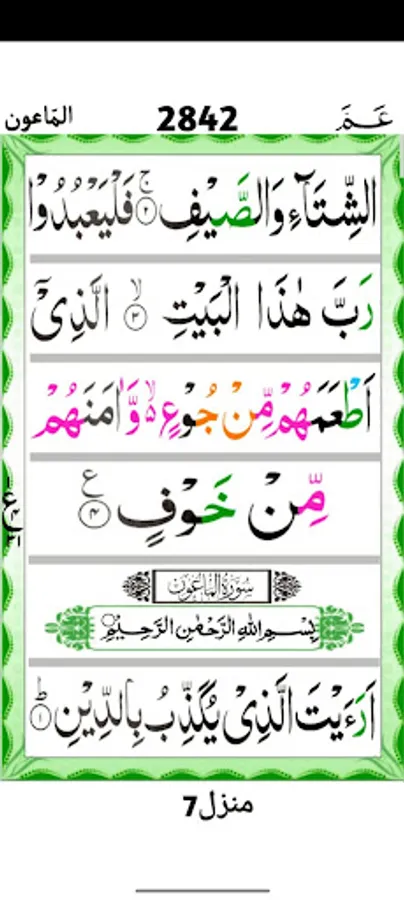 عَمَّ 2842 الماعون
الشِّتَآءِ وَالصَّيۡفِ‌ۚ‏ ﴿۲﴾ فَلۡيَعۡبُدُوۡا
رَبَّ هٰذَا الۡبَيۡتِۙ‏ ﴿۳﴾ الَّذِىۡۤ
اَطۡعَمَهُمۡ مِّنۡ جُوۡعٍ ۙ۵ وَّاٰمَنَهُمۡ
مِّنۡ خَوۡفٍ ﴿۴﴾ ع
ع
۴
سُوۡرَةُ الۡمَاعُوۡن
بِسۡمِ اللهِ الرَّحۡمٰنِ الرَّحِيۡمِ
اَرَءَيۡتَ الَّذِىۡ يُكَذِّبُ بِالدِّيۡنِؕ‏ ﴿۱﴾
منزل7